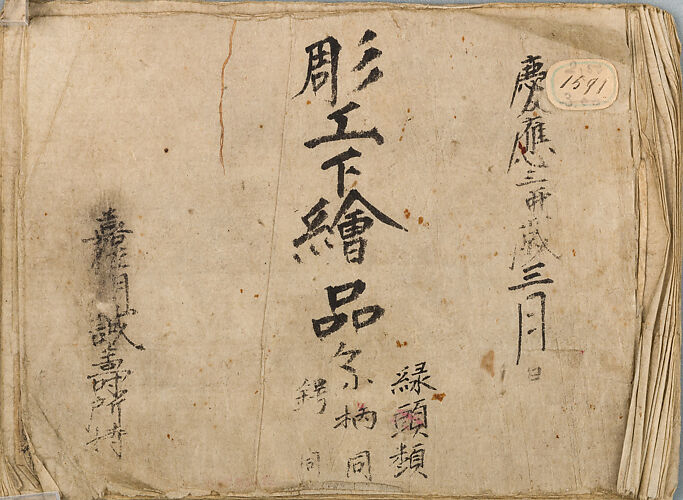 1591
慶應三卯歳三月日
縁頭類
彫工下繪品々
小柄同
鍔同
誠壽所持